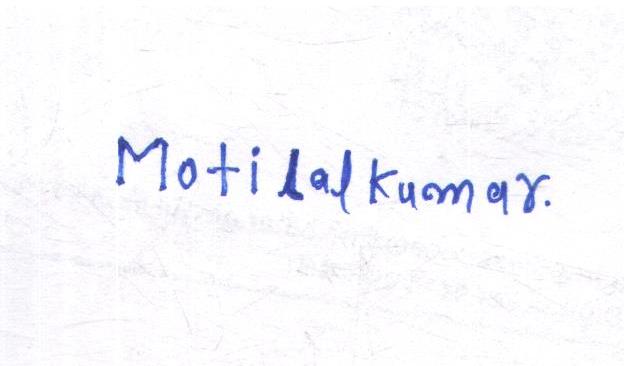 Motilal kumar.